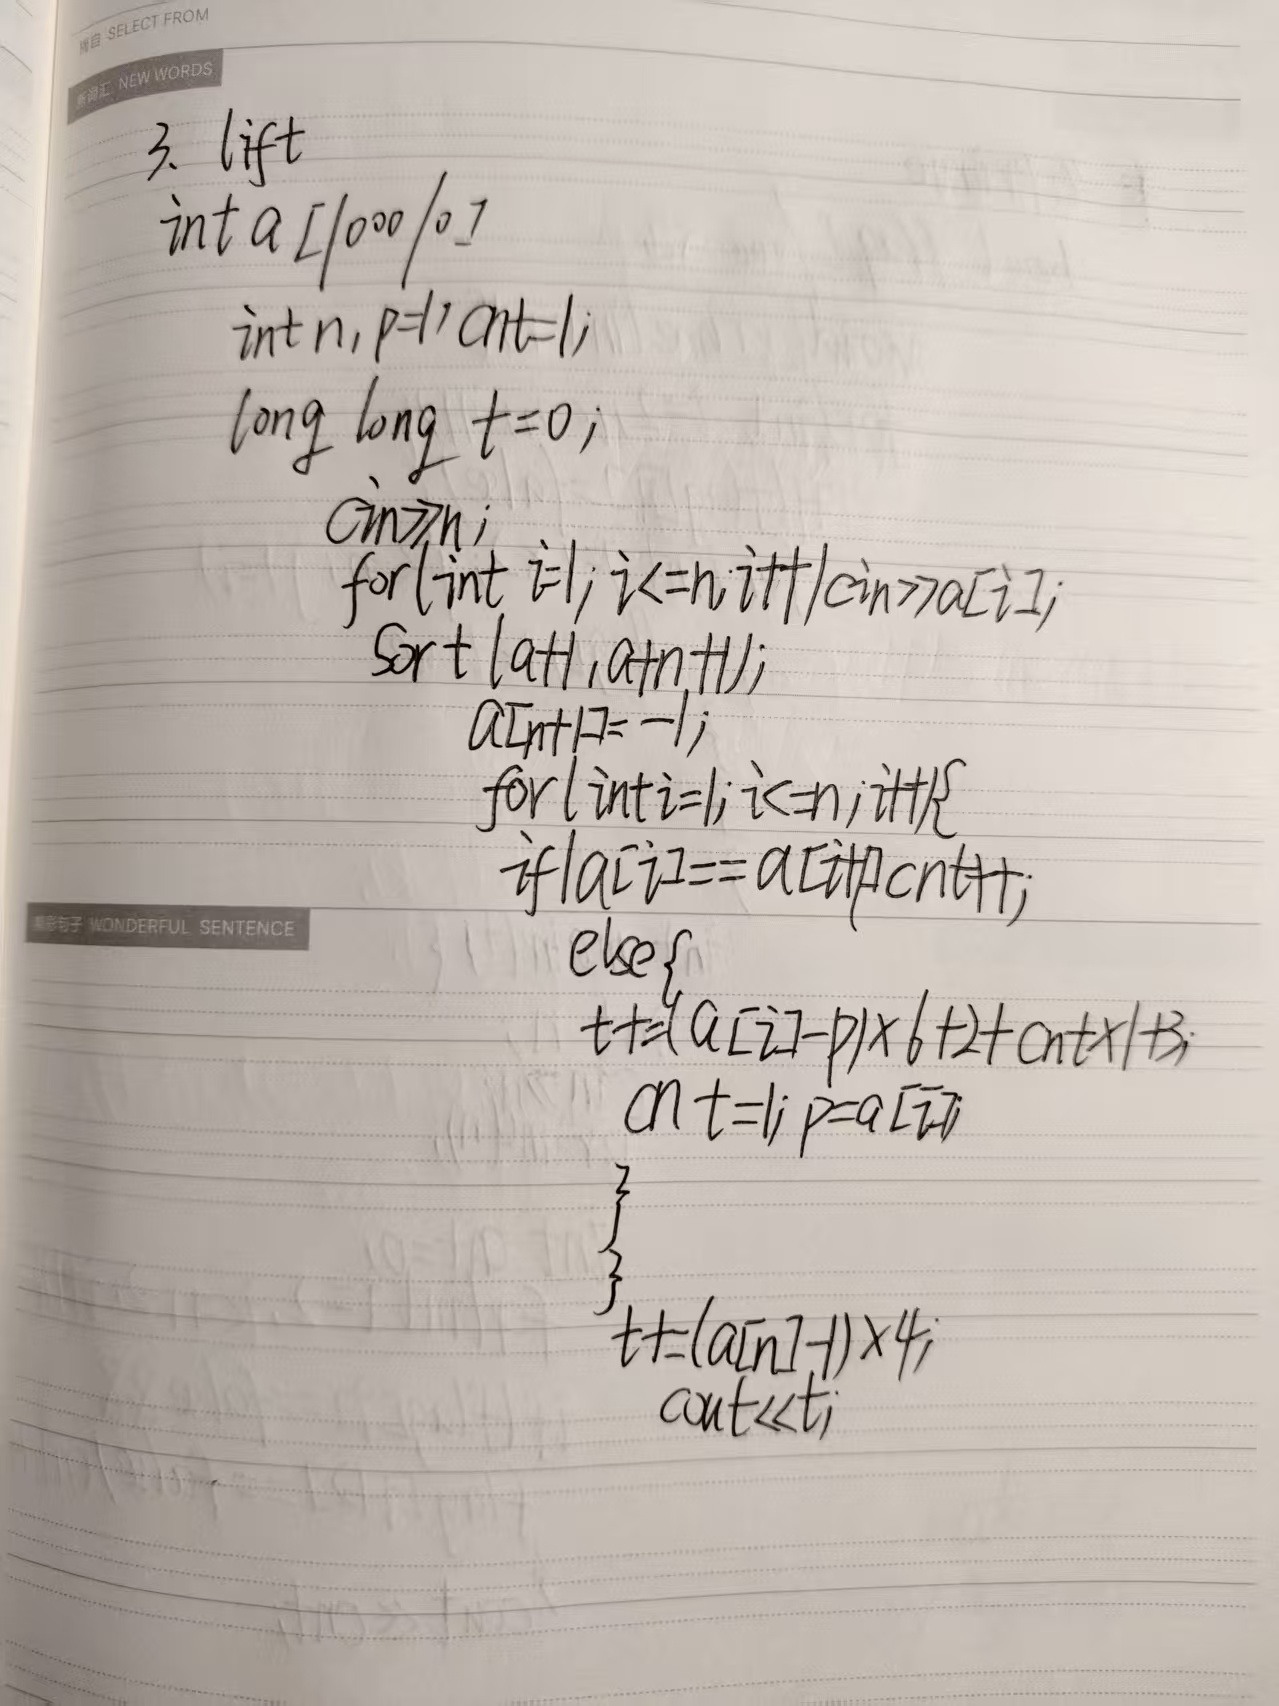 摘自 SELECT FROM
新词汇 NEW WORDS
3. lift
int a [100010]
int n, p=1, cnt=1;
long long t=0;
cin>>n;
for(int i=1; i<=n; i++)cin>>a[i];
sort(a+1, a+n+1);
a[n+1]=-1;
for(int i=1; i<=n; i++){
if(a[i]==a[i+1])cnt++;
else{
精彩句子 WONDERFUL SENTENCE
t+=(a[i]-p)×6+2)+cnt×1+3;
cnt=1; p=a[i];
}
}
t+=(a[n]-1)×4;
cout<<t;